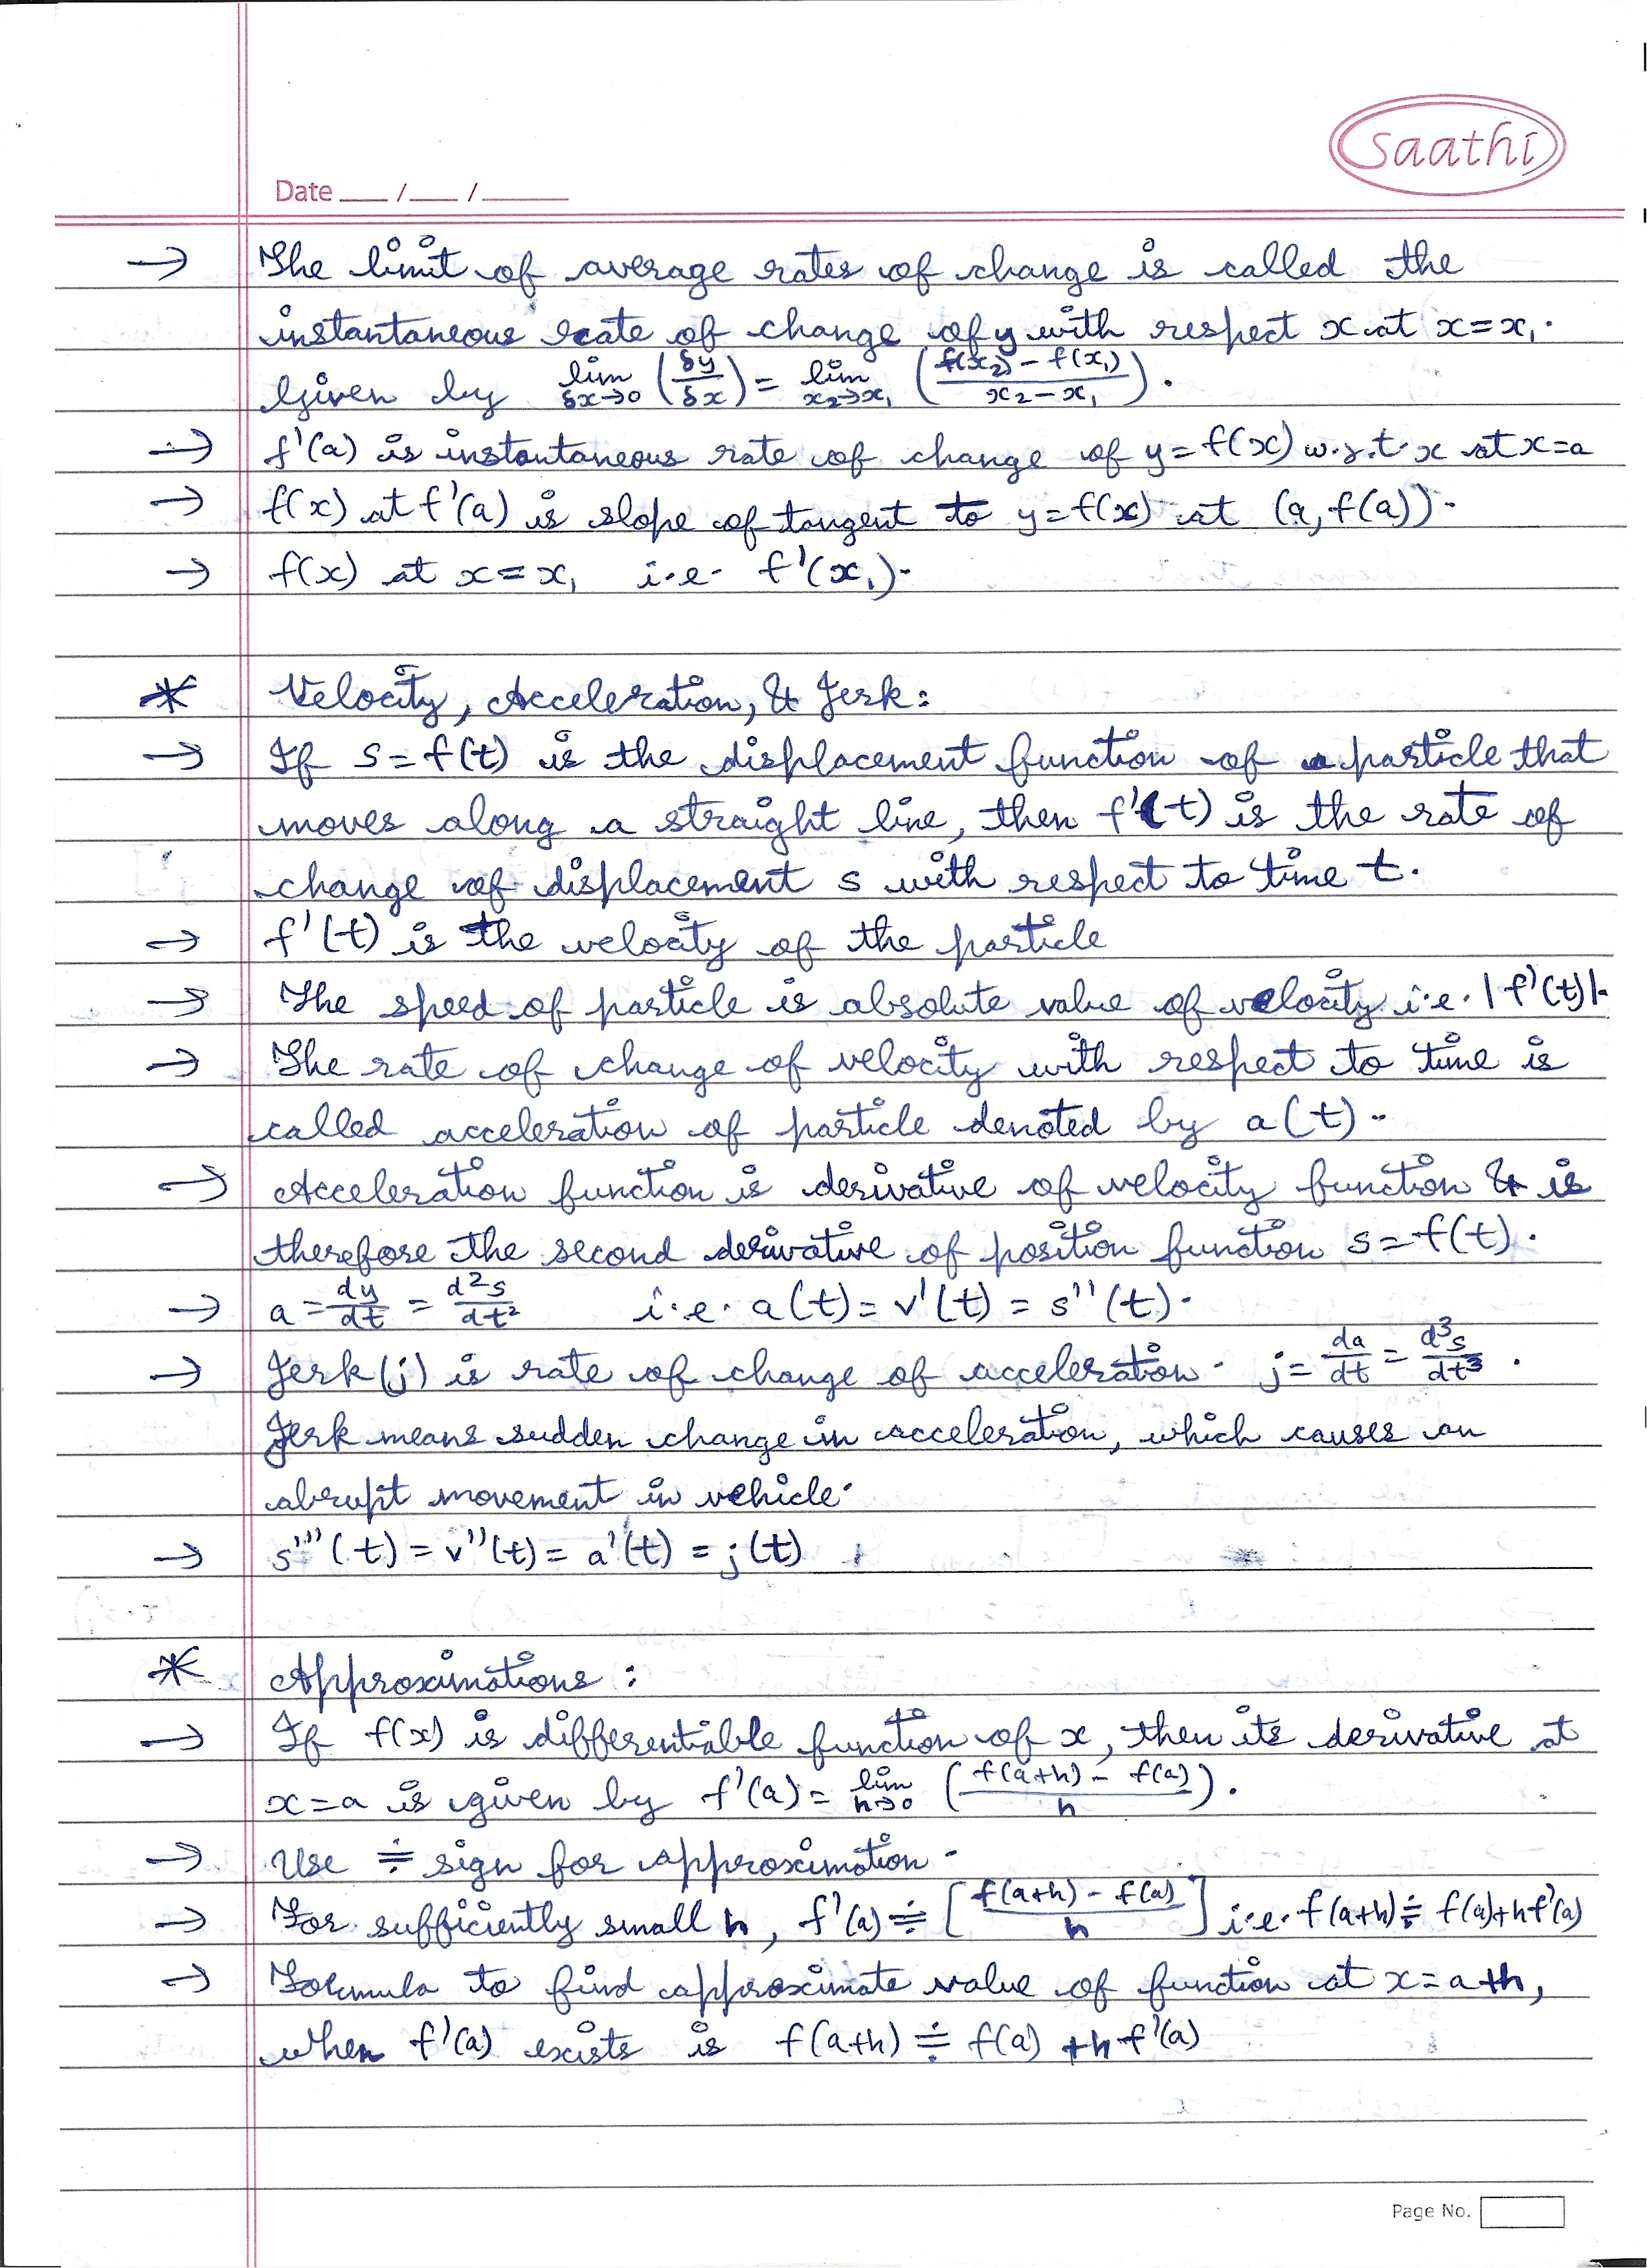 Saathi
Date ___/___/______
→ The limit of average rates of change is called the
instantaneous rate of change of y with respect x at x=x₁.
Given by lim δx→0 (δy/δx) = lim x₂→x₁ (f(x₂) - f(x₁) / x₂-x₁).
→ f'(a) is instantaneous rate of change of y=f(x) w.r.t. x at x=a
→ f(x) at f'(a) is slope of tangent to y=f(x) at (a, f(a)).
→ f(x) at x=x₁ i.e. f'(x₁).
* Velocity, Acceleration, & Jerk:
→ If s=f(t) is the displacement function of a particle that
moves along a straight line, then f'(t) is the rate of
change of displacement s with respect to time t.
→ f'(t) is the velocity of the particle
→ The speed of particle is absolute value of velocity i.e. |f'(t)|.
→ The rate of change of velocity with respect to time is
called acceleration of particle denoted by a(t).
→ Acceleration function is derivative of velocity function & is
therefore the second derivative of position function s=f(t).
→ a = dy/dt = d²s/dt² i.e. a(t) = v'(t) = s''(t).
→ Jerk(j) is rate of change of acceleration. j = da/dt = d³s/dt³.
Jerk means sudden change in acceleration, which causes an
abrupt movement in vehicle.
→ s'''(t) = v''(t) = a'(t) = j(t)
* Approximations:
→ If f(x) is differentiable function of x, then its derivative at
x=a is given by f'(a) = lim h→0 (f(a+h) - f(a) / h).
→ Use ≑ sign for approximation.
→ For sufficiently small h, f'(a) ≑ [f(a+h) - f(a) / h] i.e. f(a+h) ≑ f(a)+hf'(a)
→ Formula to find approximate value of function at x=a+h,
when f'(a) exists is f(a+h) ≑ f(a) +h f'(a)
Page No.